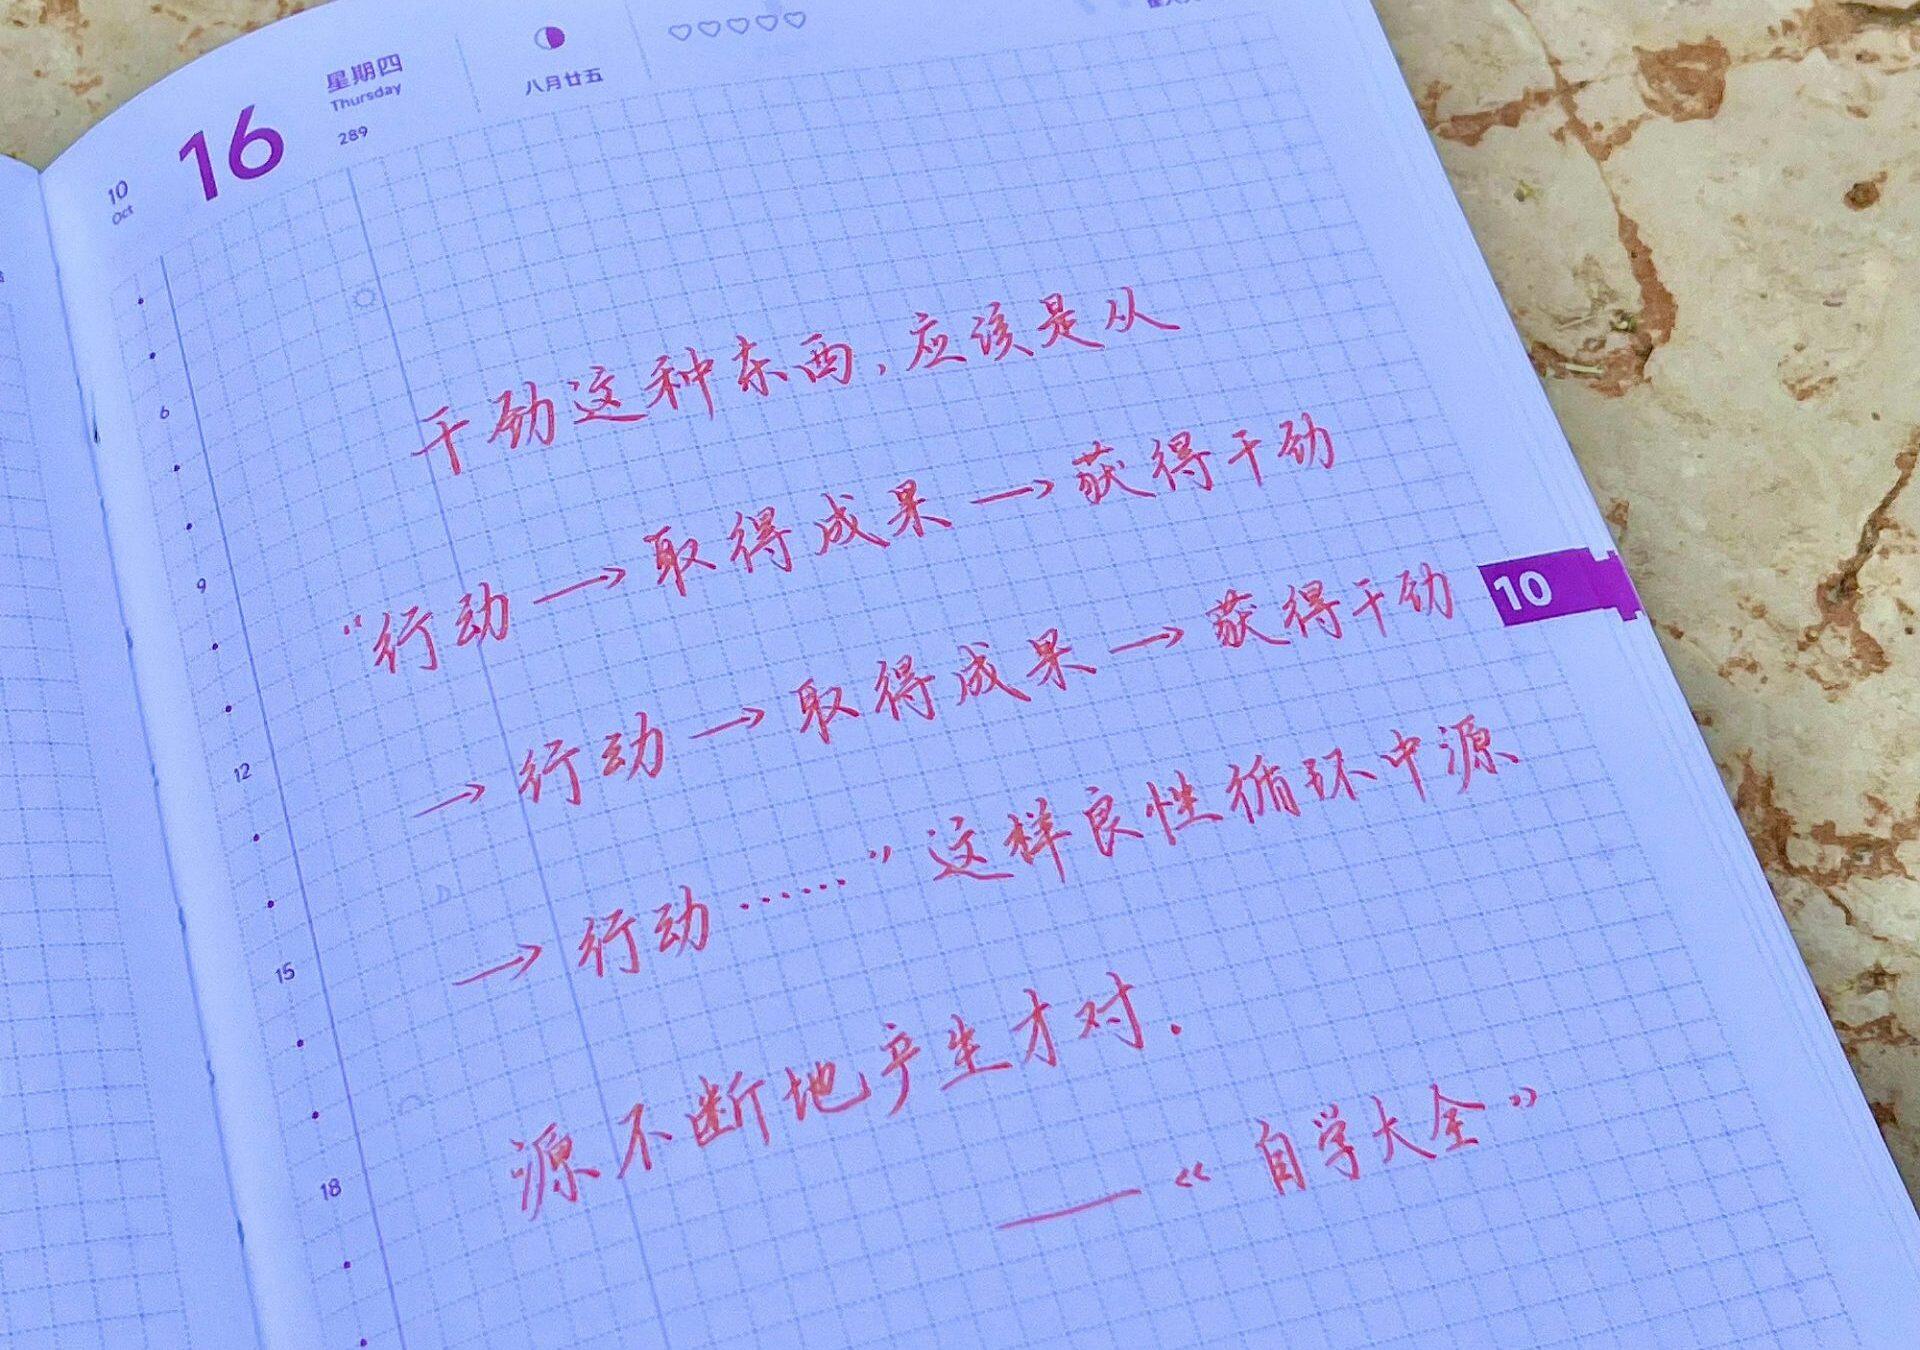 16
星期四
Thursday
289
八月廿五
10
Oct
干劲这种东西,应该是从
“行动→取得成果→获得干劲
→行动→取得成果→获得干劲
→行动……”这样良性循环中源
源不断地产生才对.
——《自学大全》
6
9
12
15
18
10